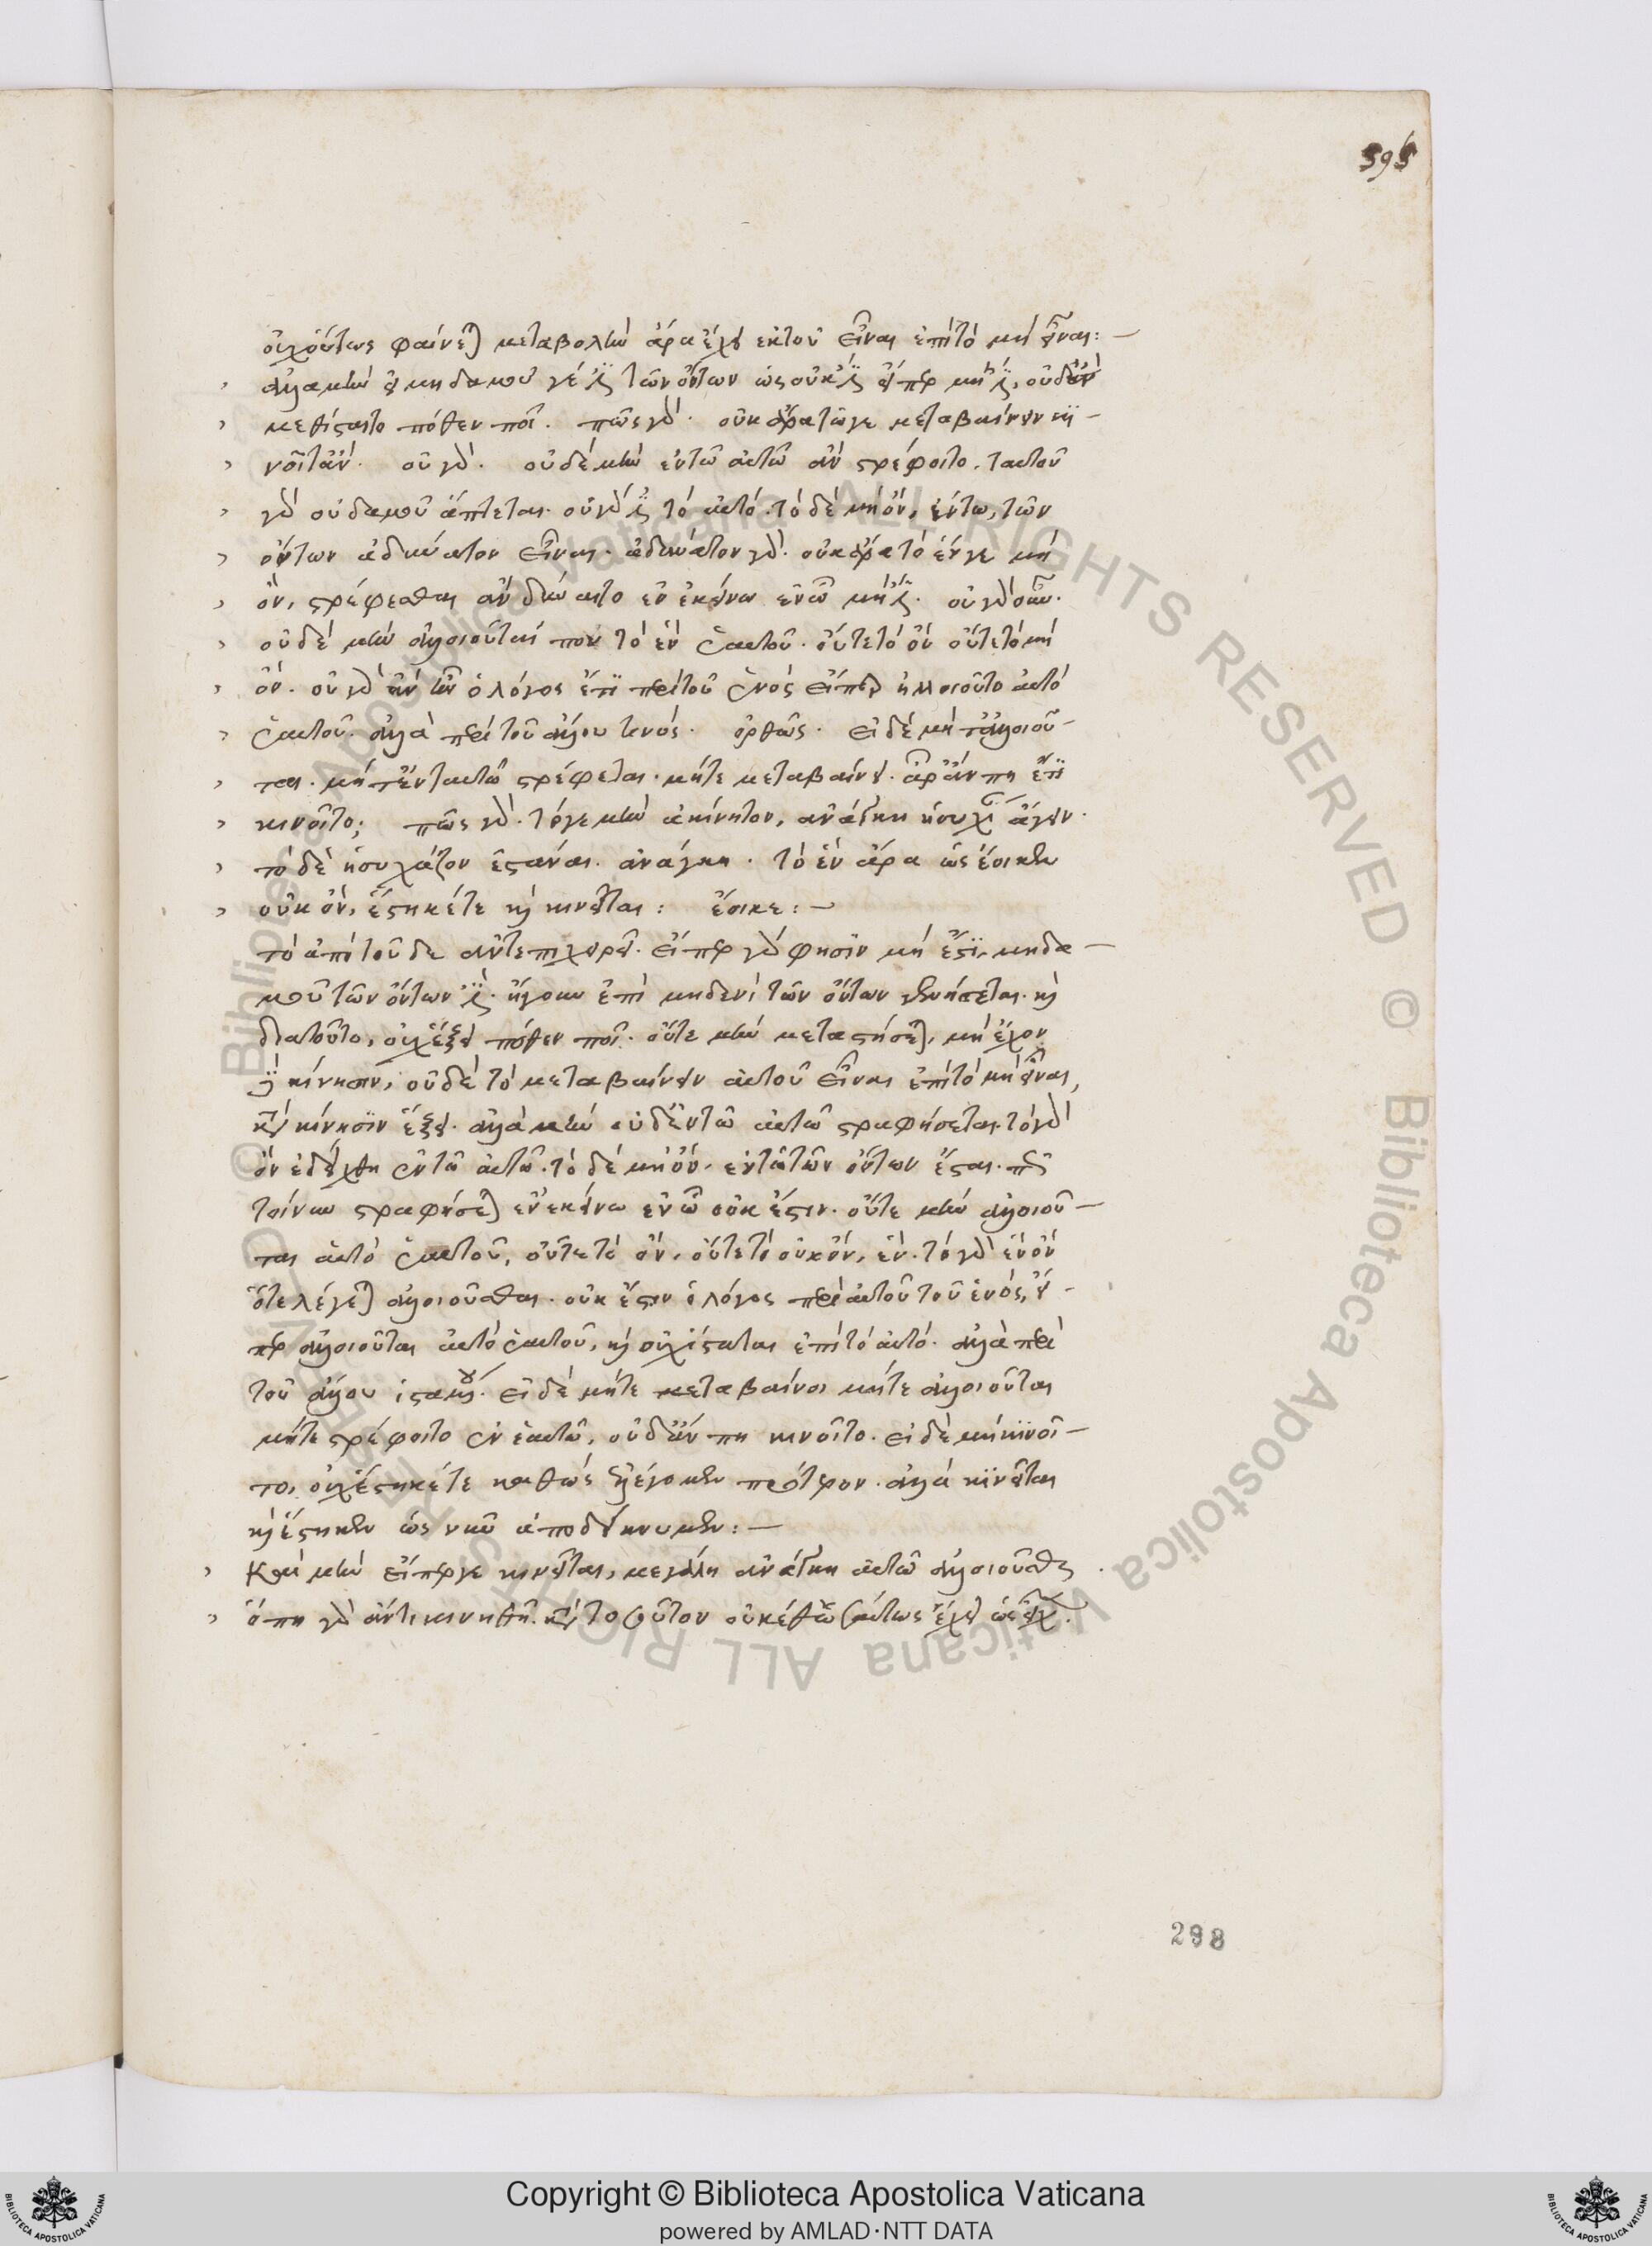 395
οὐχ οὕτως φαίνεται μεταβολὴν ἄρα ἔχει ἐκ τοῦ εἶναι ἐπὶ τὸ μὴ εἶναι:—
ἀλλὰ μὴν εἰ μηδαμοῦ γέ ἐστι τῶν ὄντων ὡς οὐκ ἔστι εἴπερ μὴ ἔστι, οὐδ' ἂν
μεθίσταιτο πόθεν ποῖ. πῶς γάρ. οὐκ ἄρα τῶ γε μεταβαίνειν κι-
νοῖτ' ἄν. οὐ γάρ. οὐδὲ μὴν ἐν τῶ αὐτῶ ἂν στρέφοιτο. ταυτοῦ
γὰρ οὐδαμοῦ ἅπτεται. ὂν γὰρ ἐστὶ τὸ αὐτό. τὸ δὲ μὴ ὄν, ἔν τω, τῶν
ὄντων ἀδύνατον εἶναι. ἀδύνατον γάρ. οὐκ ἄρα τὸ ἕν γε μὴ
ὄν, στρέφεσθαι ἂν δύναιτο ἐν ἐκείνω ἐν ᾧ μὴ ἔστι. οὐ γὰρ οὖν.
οὐδὲ μὴν ἀλλοιοῦταί που τὸ ἓν ἑαυτοῦ. οὔτε τὸ ὂν οὔτε τὸ μὴ
ὄν. οὐ γὰρ ἂν ἦν ὁ λόγος ἔτι περὶ τοῦ ἑνὸς εἴπερ ἠλλοιοῦτο αὐτὸ
ἑαυτοῦ. ἀλλὰ περὶ τοῦ ἄλλου τινός. ὀρθῶς. εἰ δὲ μήτ' ἀλλοιοῦ-
ται. μήτ' ἐν ταυτῶ στρέφεται. μήτε μεταβαίνει. ἆρ' ἄν πη ἔτι
κινοῖτο; πῶς γάρ. τό γε μὴν ἀκίνητον, ἀνάγκη ἡσυχίαν ἄγειν.
τὸ δὲ ἡσυχάζον ἑστάναι. ἀνάγκη. τὸ ἓν ἄρα ὡς ἔοικεν
οὐκ ὄν, ἕστηκέ τε καὶ κινεῖται: ἔοικε:—
τὸ ἀπὸ τοῦδε ἀντεπιχειρεῖ. εἴπερ γὰρ φησὶν μὴ ἔστι, μηδα-
μοῦ τῶν ὄντων ἐστί. ἤγουν ἐπὶ μηδενὶ τῶν ὄντων
διὰ τοῦτο, οὐχ ἕξει πόθεν ποῖ. οὔτε μὴν μεταστήσεται, μὴ ἔχον
κίνησιν, οὐδὲ τὸ μεταβαίνειν αὐτοῦ εἶναι ἐπὶ τὸ μὴ εἶναι,
κίνησιν ἕξει. ἀλλὰ μὴν οὐδ' ἐν τῶ αὐτῶ στραφήσεται. τὸ γὰρ
ὂν ἐδείχθη ἐν τῶ αὐτῶ. τὸ δὲ μὴ ὄν, ἐν τῶν ὄντων ἔσται. πῶς
τοίνυν στραφήσεται ἐν ἐκείνω ἐν ᾧ οὐκ ἔστιν. οὔτε μὴν ἀλλοιοῦ-
ται αὐτὸ ἑαυτοῦ, οὔτε τὸ ὄν, οὔτε τὸ οὐκ ὄν, ἕν. τὸ γὰρ ἓν ὂν
ὅτε λέγεται ἀλλοιοῦσθαι. οὐκ ἔστιν ὁ λόγος περὶ αὐτοῦ τοῦ ἑνός, εἴ-
περ ἀλλοιοῦται αὐτὸ ἑαυτοῦ, καὶ οὐχ ἵσταται ἐπὶ τὸ αὐτό. ἀλλὰ περὶ
τοῦ ἄλλου ἱσταμένου. εἰ δὲ μήτε μεταβαίνοι μήτε ἀλλοιοῦται
μήτε στρέφοιτο ἐν ἑαυτῶ, οὐδ' ἄν πη κινοῖτο. εἰ δὲ μὴ κινοῖ-
το, οὐχ ἕστηκέ τε καθὼς ἐλέγομεν πρότερον. ἀλλὰ κινεῖται
καὶ ἕστηκεν ὡς νῦν ἀποδείκνυμεν:—
Καὶ μὴν εἴπερ γε κινεῖται, μεγάλη ἀνάγκη αὐτῶ ἀλλοιοῦσθαι.
ὅπη γὰρ ἄν τι κινηθῆ. κατὰ τοσοῦτον οὐκέθ' ὡσαύτως ἔχει ὡς εἶχεν.
298
Copyright © Biblioteca Apostolica Vaticana
powered by AMLAD·NTT DATA